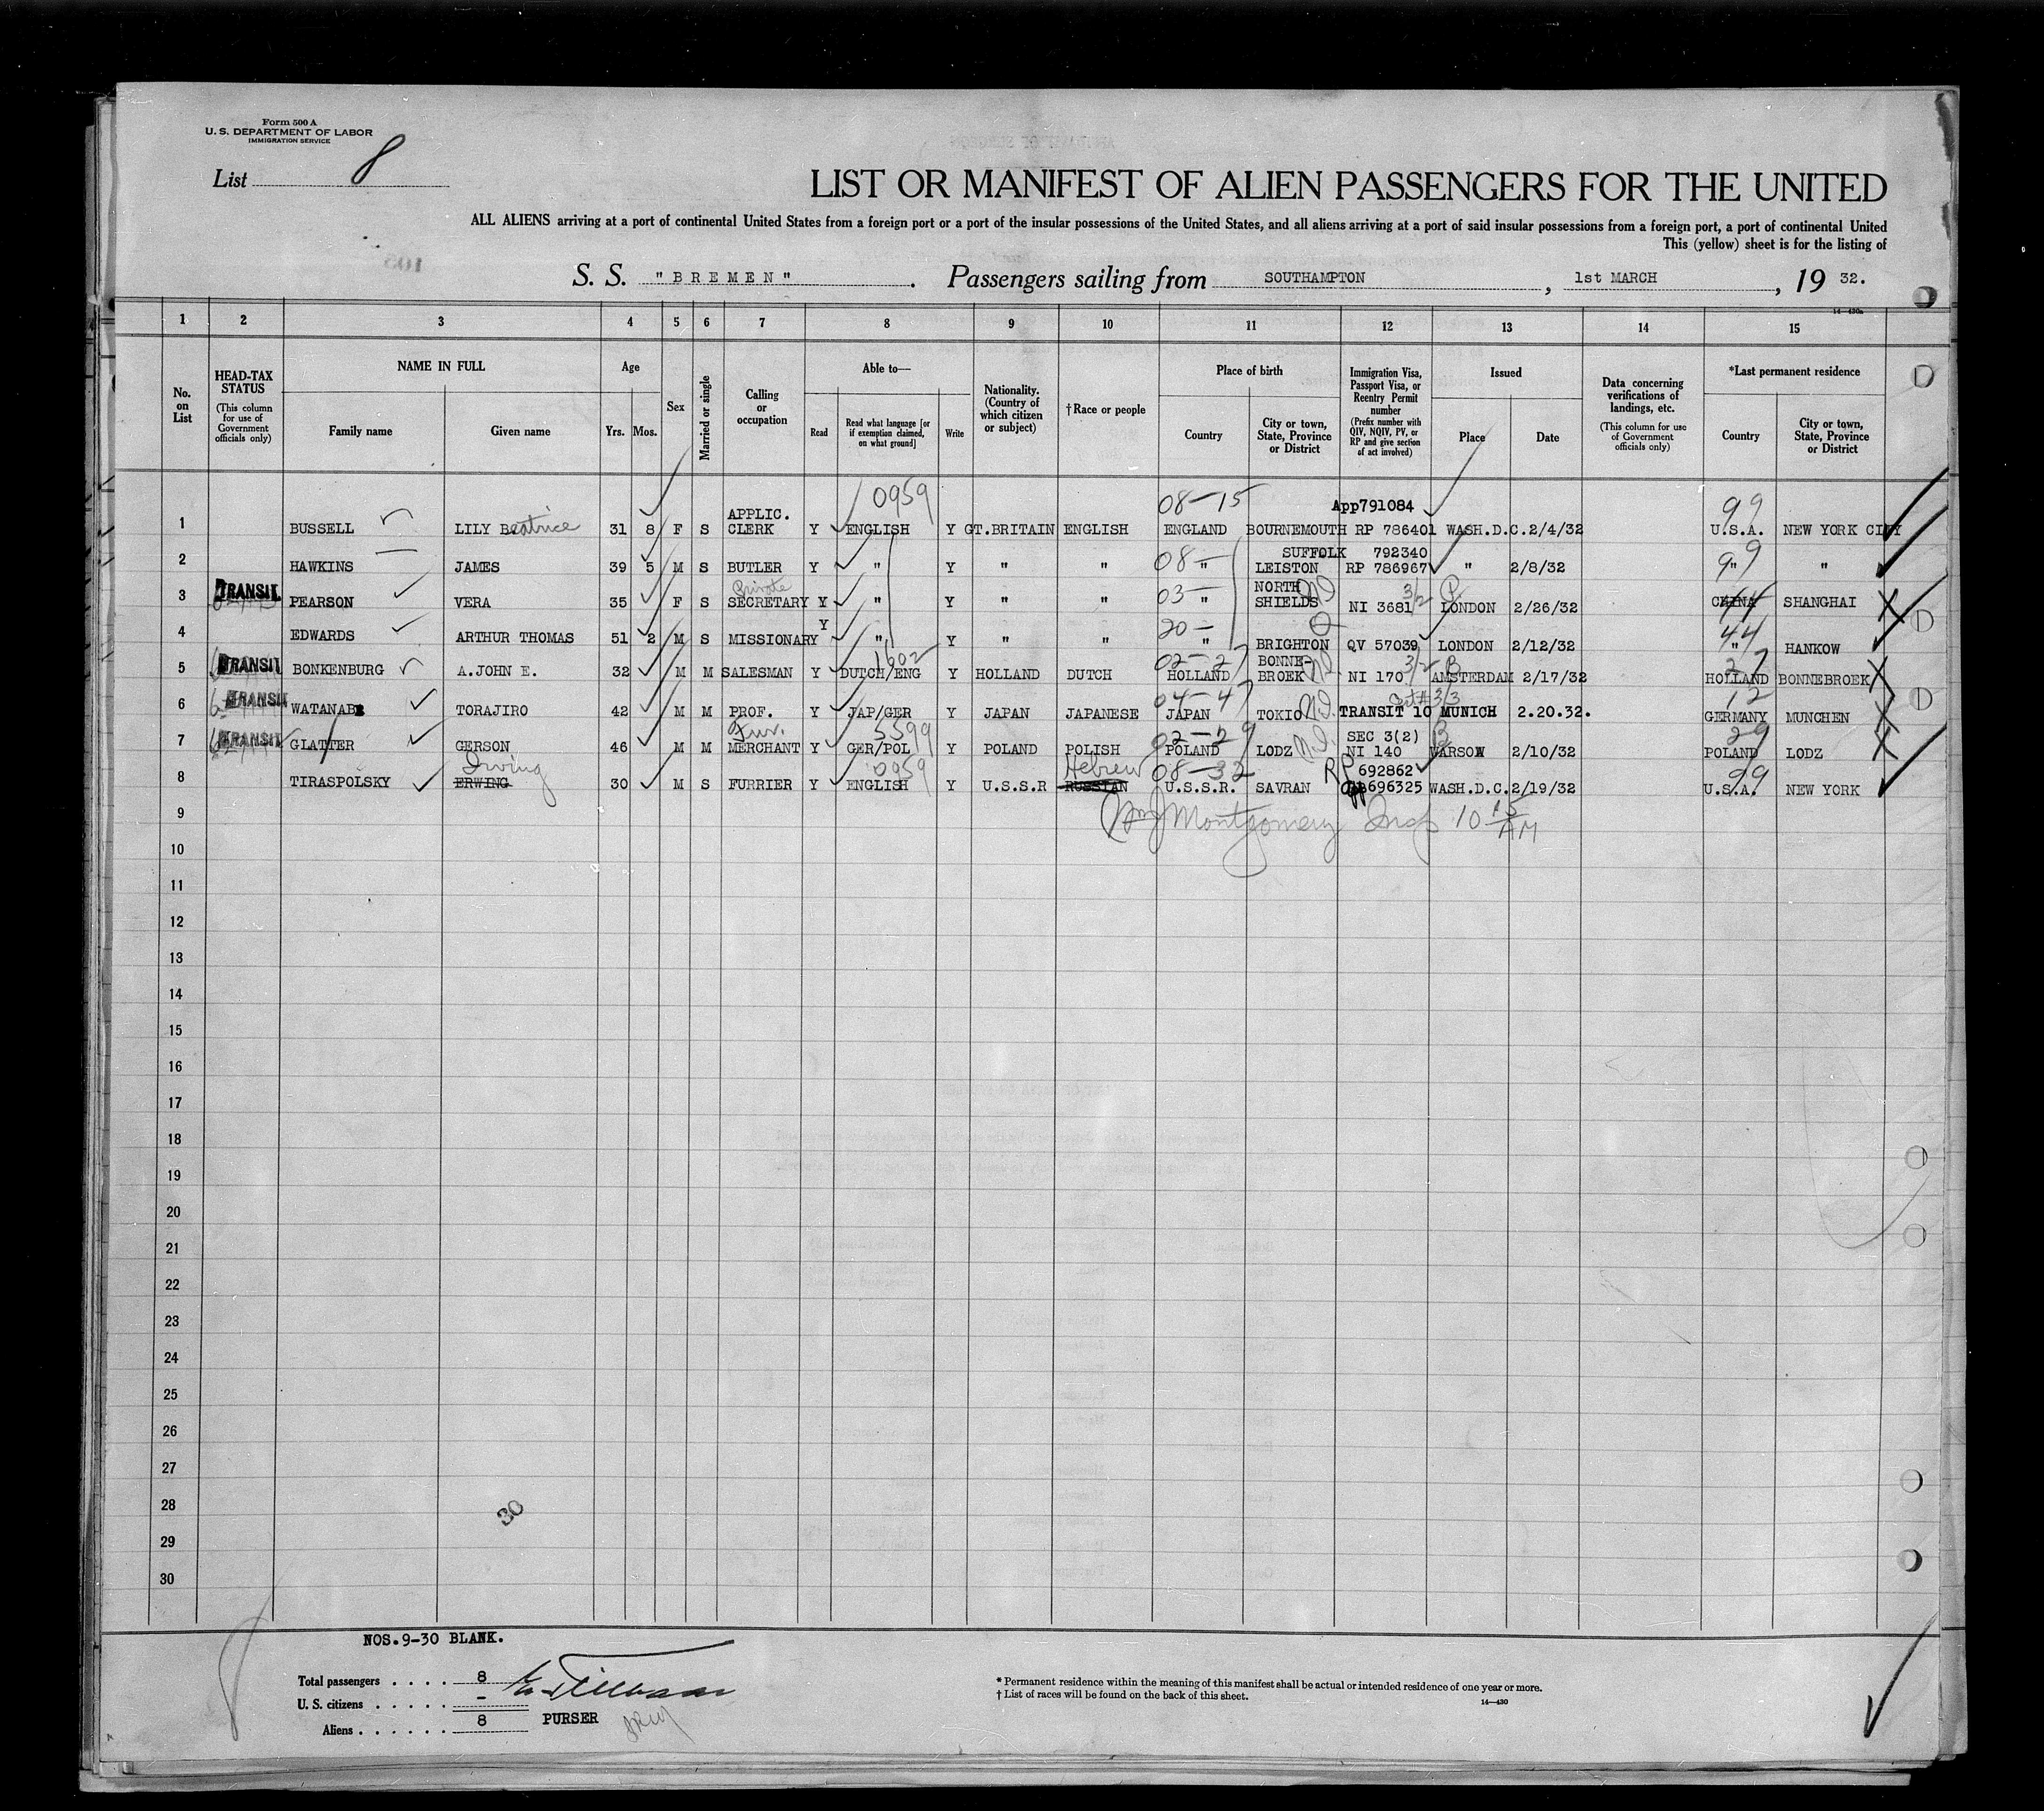 Form 500 A
U. S. DEPARTMENT OF LABOR
IMMIGRATION SERVICE
List 8
LIST OR MANIFEST OF ALIEN PASSENGERS FOR THE UNITED
ALL ALIENS arriving at a port of continental United States from a foreign port or a port of the insular possessions of the United States, and all aliens arriving at a port of said insular possessions from a foreign port, a port of continental United
This (yellow) sheet is for the listing of
S. S. "BREMEN". Passengers sailing from SOUTHAMPTON, 1st MARCH, 19 32.
14—430a
1 2 3 4 5 6 7 8 9 10 11 12 13 14 15
No. on List
HEAD-TAX STATUS (This column for use of Government officials only)
NAME IN FULL Family name Given name
Age Yrs. Mos.
Sex
Married or single
Calling or occupation
Able to— Read Read what language [or if exemption claimed, on what ground] Write
Nationality. (Country of which citizen or subject)
†Race or people
Place of birth Country City or town, State, Province or District
Immigration Visa, Passport Visa, or Reentry Permit number (Prefix number with QIV, NQIV, PV, or RP and give section of act involved)
Issued Place Date
Data concerning verifications of landings, etc. (This column for use of Government officials only)
*Last permanent residence Country City or town, State, Province or District
0959 08-15 App791084 99
APPLIC.
1 BUSSELL LILY Beatrice 31 8 F S CLERK Y ENGLISH Y GT.BRITAIN ENGLISH ENGLAND BOURNEMOUTH RP 786401 WASH.D.C. 2/4/32 U.S.A. NEW YORK CITY
08- SUFFOLK 792340 99
2 HAWKINS JAMES 39 5 M S BUTLER Y " Y " " " LEISTON RP 786967 " 2/8/32 " "
TRANSIT Private 03- NORTH 3/2 44
3 PEARSON VERA 35 F S SECRETARY Y " Y " " " SHIELDS NI 3681 LONDON 2/26/32 CHINA SHANGHAI
Y 20- 44
4 EDWARDS ARTHUR THOMAS 51 2 M S MISSIONARY " Y " " " BRIGHTON QV 57039 LONDON 2/12/32 " HANKOW
TRANSIT 1602 02-27 BONNE- 3/2 27
5 BONKENBURG A.JOHN E. 32 M M SALESMAN Y DUTCH/ENG Y HOLLAND DUTCH HOLLAND BROEK NI 170 AMSTERDAM 2/17/32 HOLLAND BONNEBROEK
TRANSIT 04-47 3/3 12
6 WATANABE TORAJIRO 42 M M PROF. Y JAP/GER Y JAPAN JAPANESE JAPAN TOKIO TRANSIT 10 MUNICH 2.20.32. GERMANY MUNCHEN
TRANSIT Fur. 5399 02-29 SEC 3(2) 29
7 GLATTER GERSON 46 M M MERCHANT Y GER/POL Y POLAND POLISH POLAND LODZ NI 140 WARSOW 2/10/32 POLAND LODZ
Irving 0959 Hebrew 08-32 RP 692862 99
8 TIRASPOLSKY ERWING 30 M S FURRIER Y ENGLISH Y U.S.S.R RUSSIAN U.S.S.R. SAVRAN 696325 WASH.D.C. 2/19/32 U.S.A. NEW YORK
9 Montgomery Insp 10 15 AM
10
11
12
13
14
15
16
17
18
19
20
21
22
23
24
25
26
27
28
29
30
30
NOS.9-30 BLANK.
Total passengers . . . . 8
U. S. citizens . . . . . -
Aliens . . . . . . 8 PURSER
* Permanent residence within the meaning of this manifest shall be actual or intended residence of one year or more.
† List of races will be found on the back of this sheet.
14—430